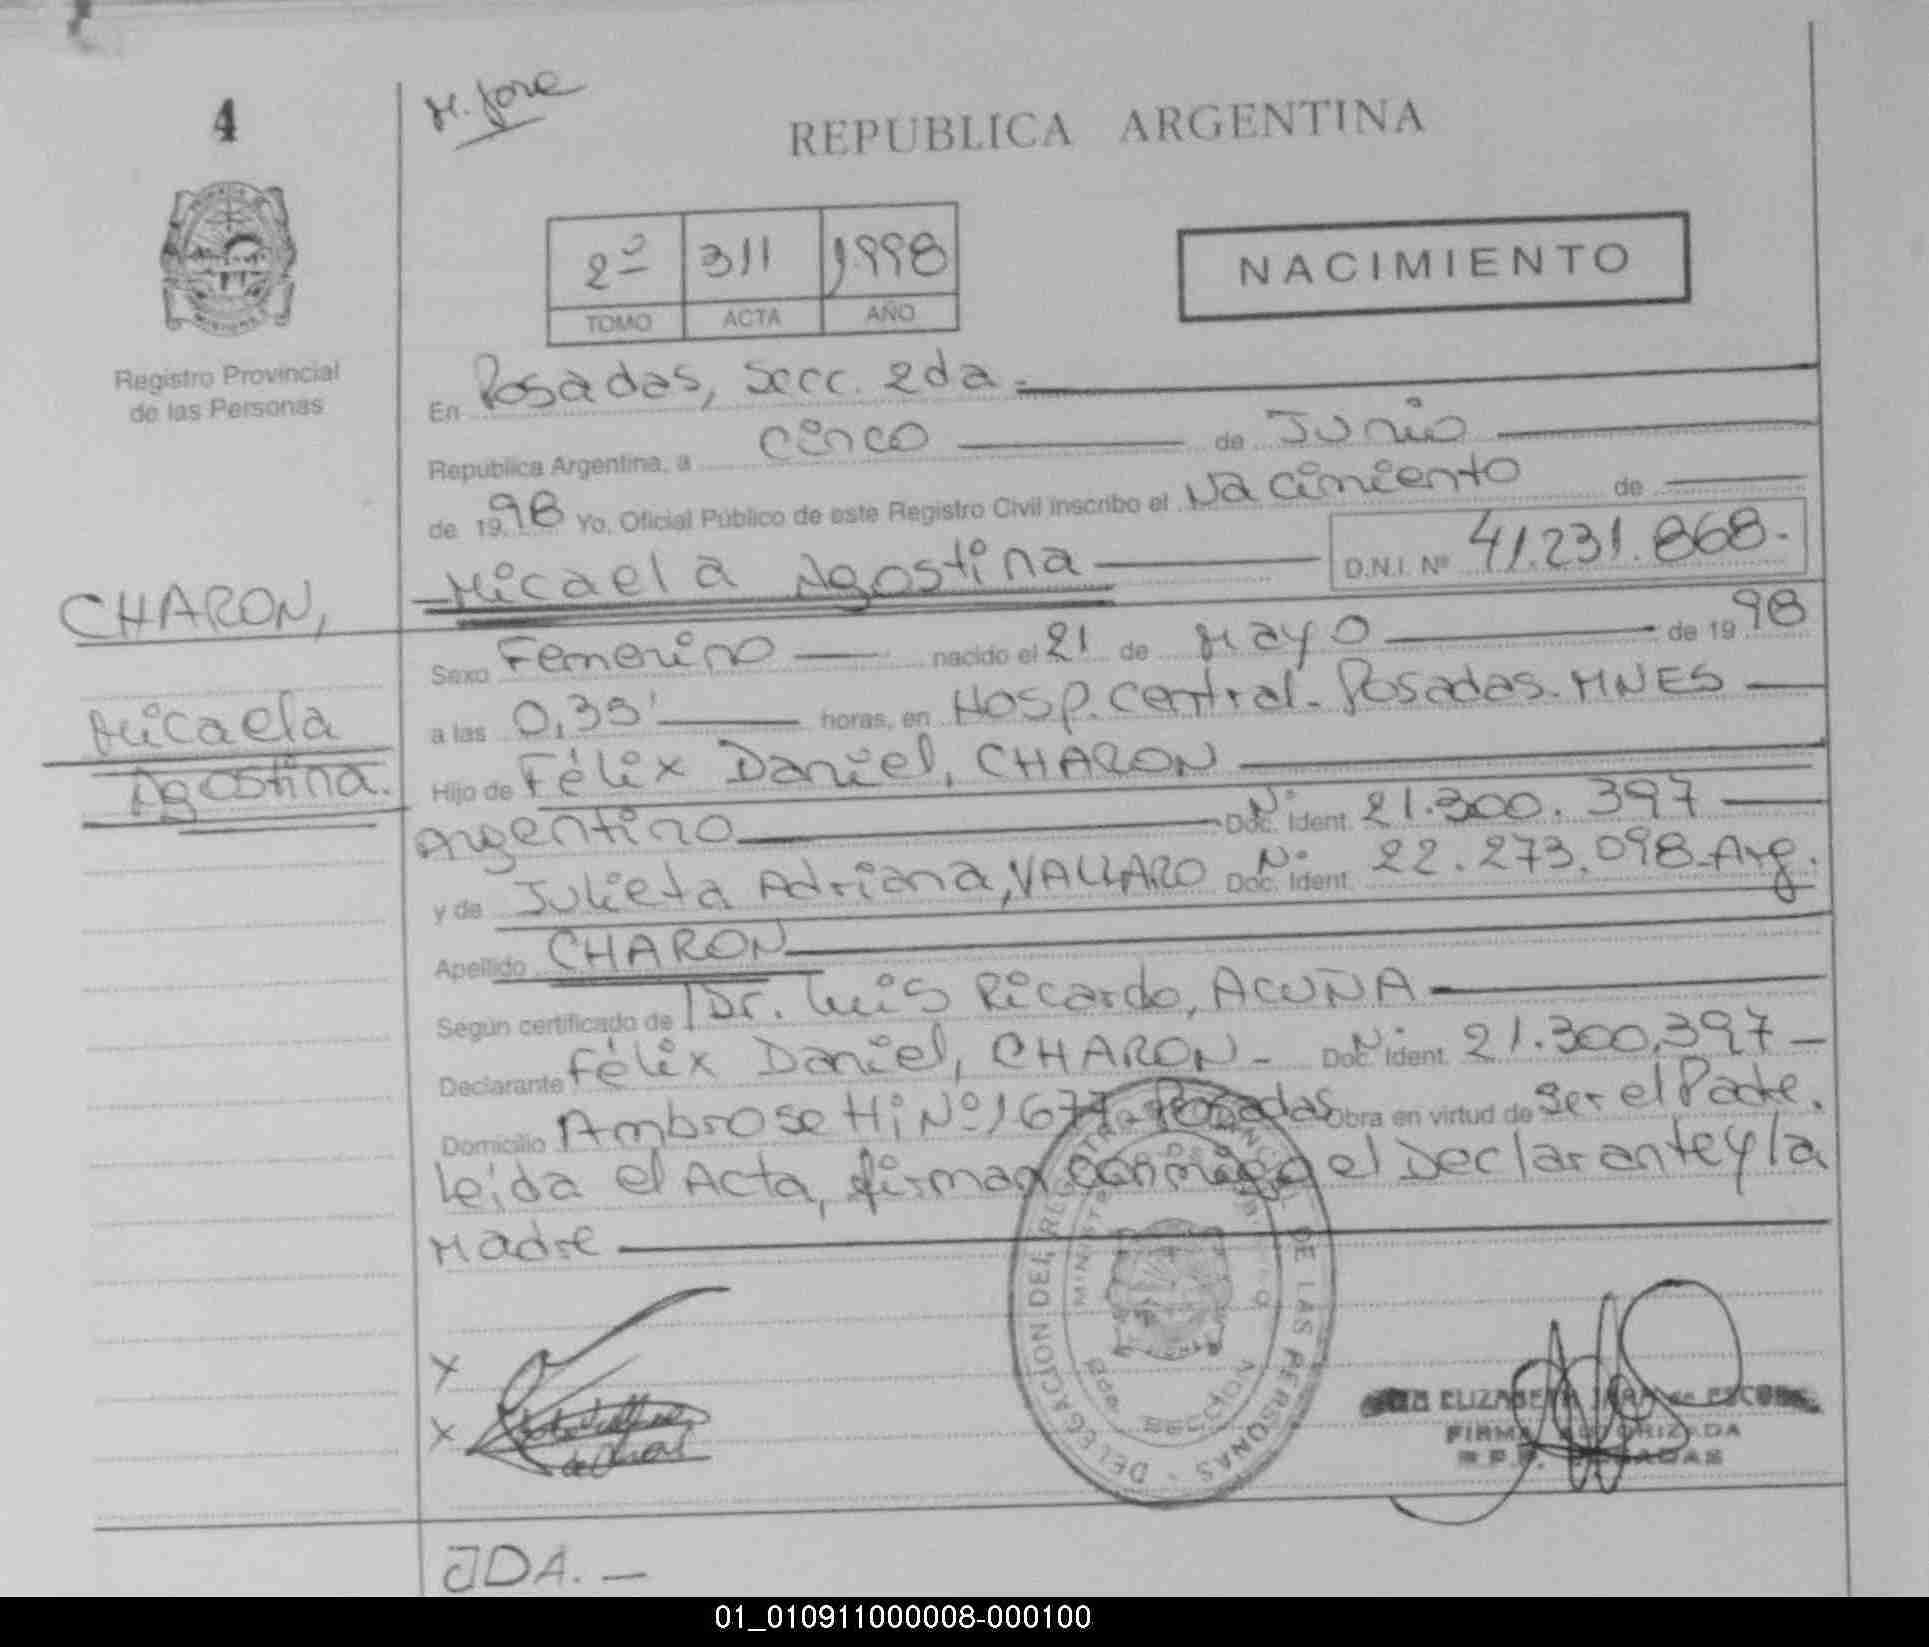 4
M. José
REPUBLICA ARGENTINA
2º 311 1998
TOMO ACTA AÑO
NACIMIENTO
Registro Provincial
de las Personas
En Posadas, Secc. 2da.
Republica Argentina, a cinco de Junio
de 1998 Yo, Oficial Público de este Registro Civil inscribo el Nacimiento de
Micaela Agostina D.N.I. Nº 41.231.868.
CHARON,
Micaela
Agostina.
Sexo Femenino nacido el 21 de Mayo de 1998
a las 0,35' horas, en Hosp. Central. Posadas. MNES
Hijo de Félix Daniel, CHARON
Argentino Doc. Ident. Nº 21.300.397
y de Julieta Adriana, VALLARO Doc. Ident. Nº 22.273.098 Arg.
Apellido CHARON
Según certificado de Dr. Luis Ricardo, ACUÑA
Declarante Félix Daniel, CHARON - Doc. Ident. Nº 21.300.397
Domicilio Ambrosetti Nº 1677 - Posadas Obra en virtud de Ser el Padre.
Leída el Acta, firman conmigo el Declarante y la
Madre
X
X
DELEGACION DEL REGISTRO PROVINCIAL DE LAS PERSONAS
2da SECCION
ELIZABETH de ESCOB
FIRMA AUTORIZADA
R.P.P. POSADAS
JDA.-
01_010911000008-000100